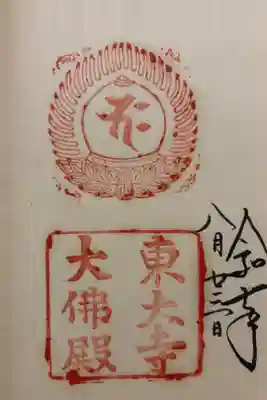 令和年
八月廿三日
東大寺
大佛殿